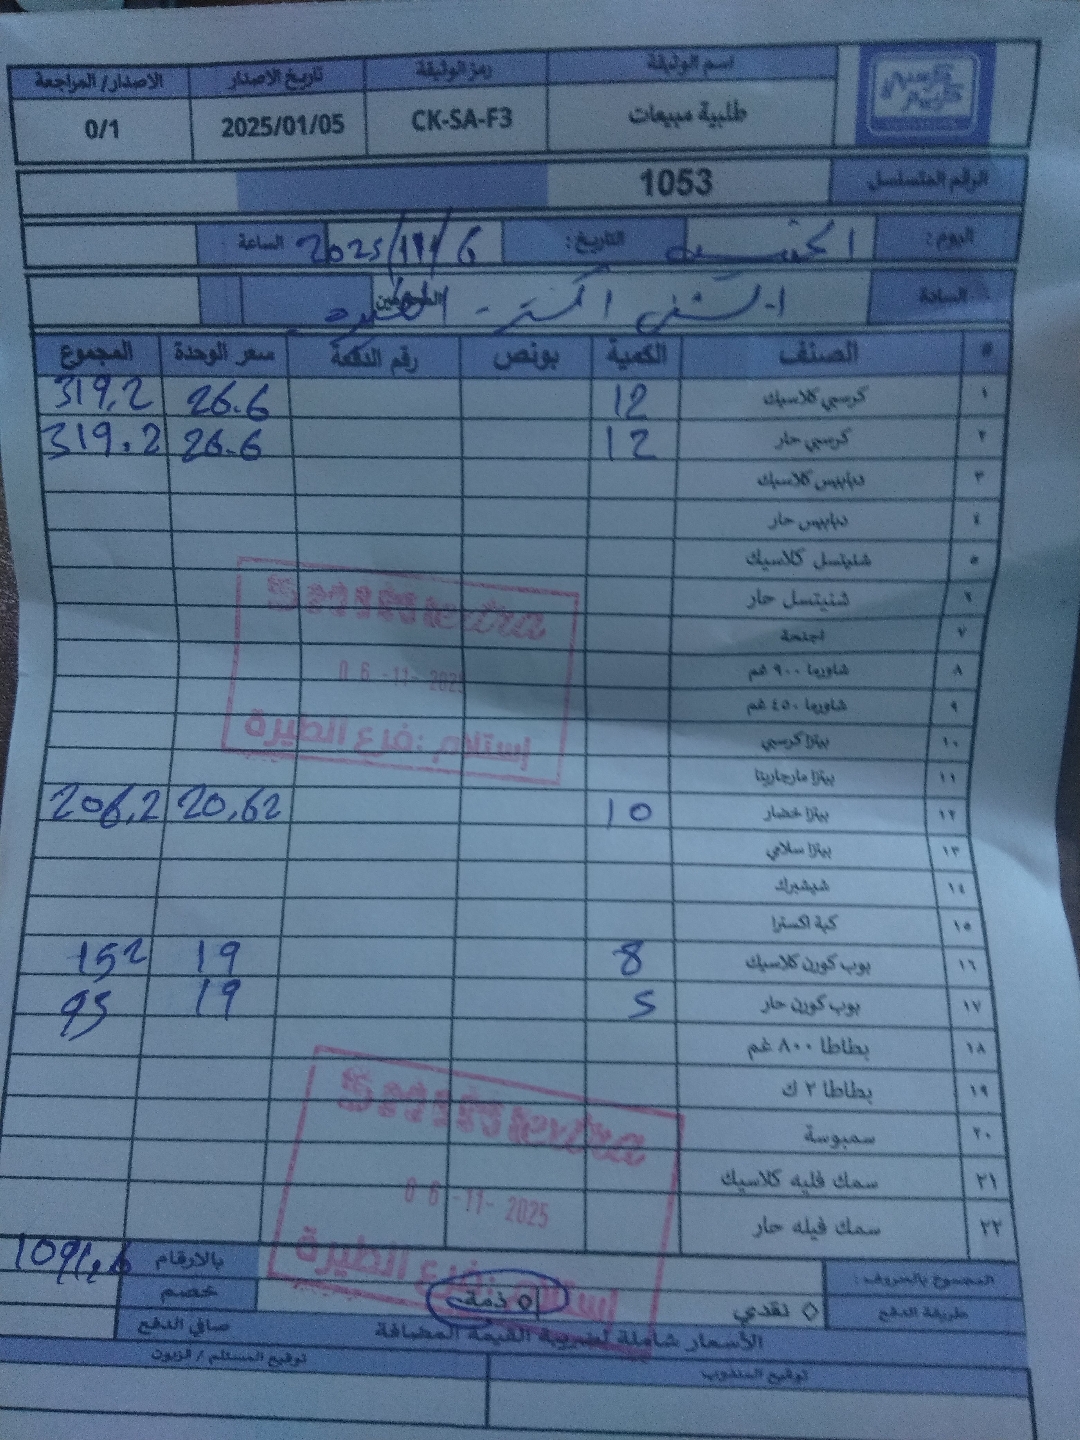 كرسبي كرسبي
اسم الوثيقة رمز الوثيقة تاريخ الاصدار الاصدار/المراجعة
طلبية مبيعات CK-SA-F3 2025/01/05 0/1
الرقم المتسلسل 1053
اليوم: الخميس التاريخ: 6/11/2025 الساعة
السادة
# الصنف الكمية بونص سعر الوحدة المجموع
١ كرسبي كلاسيك 12 26.6 319,2
٢ كرسبي حار 12 26.6 319.2
٣ دبابيس كلاسيك
٤ دبابيس حار
٥ شنيتسل كلاسيك
٦ شنيتسل حار
٧ اجنحة
٨ شاورما ٩٠٠ غم
٩ شاورما ٤٥٠ غم
١٠ بيتزا كرسبي
١١ بيتزا مارجاريتا
١٢ بيتزا خضار 10 20,62 206,2
١٣ بيتزا سلامي
١٤ شيشبرك
١٥ كبة اكسترا
١٦ بوب كورن كلاسيك 8 19 152
١٧ بوب كورن حار 5 19 95
١٨ بطاطا ٨٠٠ غم
١٩ بطاطا ٢ ك
٢٠ سمبوسة
٢١ سمك فليه كلاسيك
٢٢ سمك فيله حار
06-11-2025
إستلام: فرع الطيرة
06-11-2025
إستلام: فرع الطيرة
المجموع بالحروف: بالارقام 1091,6
طريقة الدفع ◇ نقدي ◇ ذمة خصم
الأسعار شاملة لضريبة القيمة المضافة صافي الدفع
توقيع المندوب توقيع المستلم / الزبون